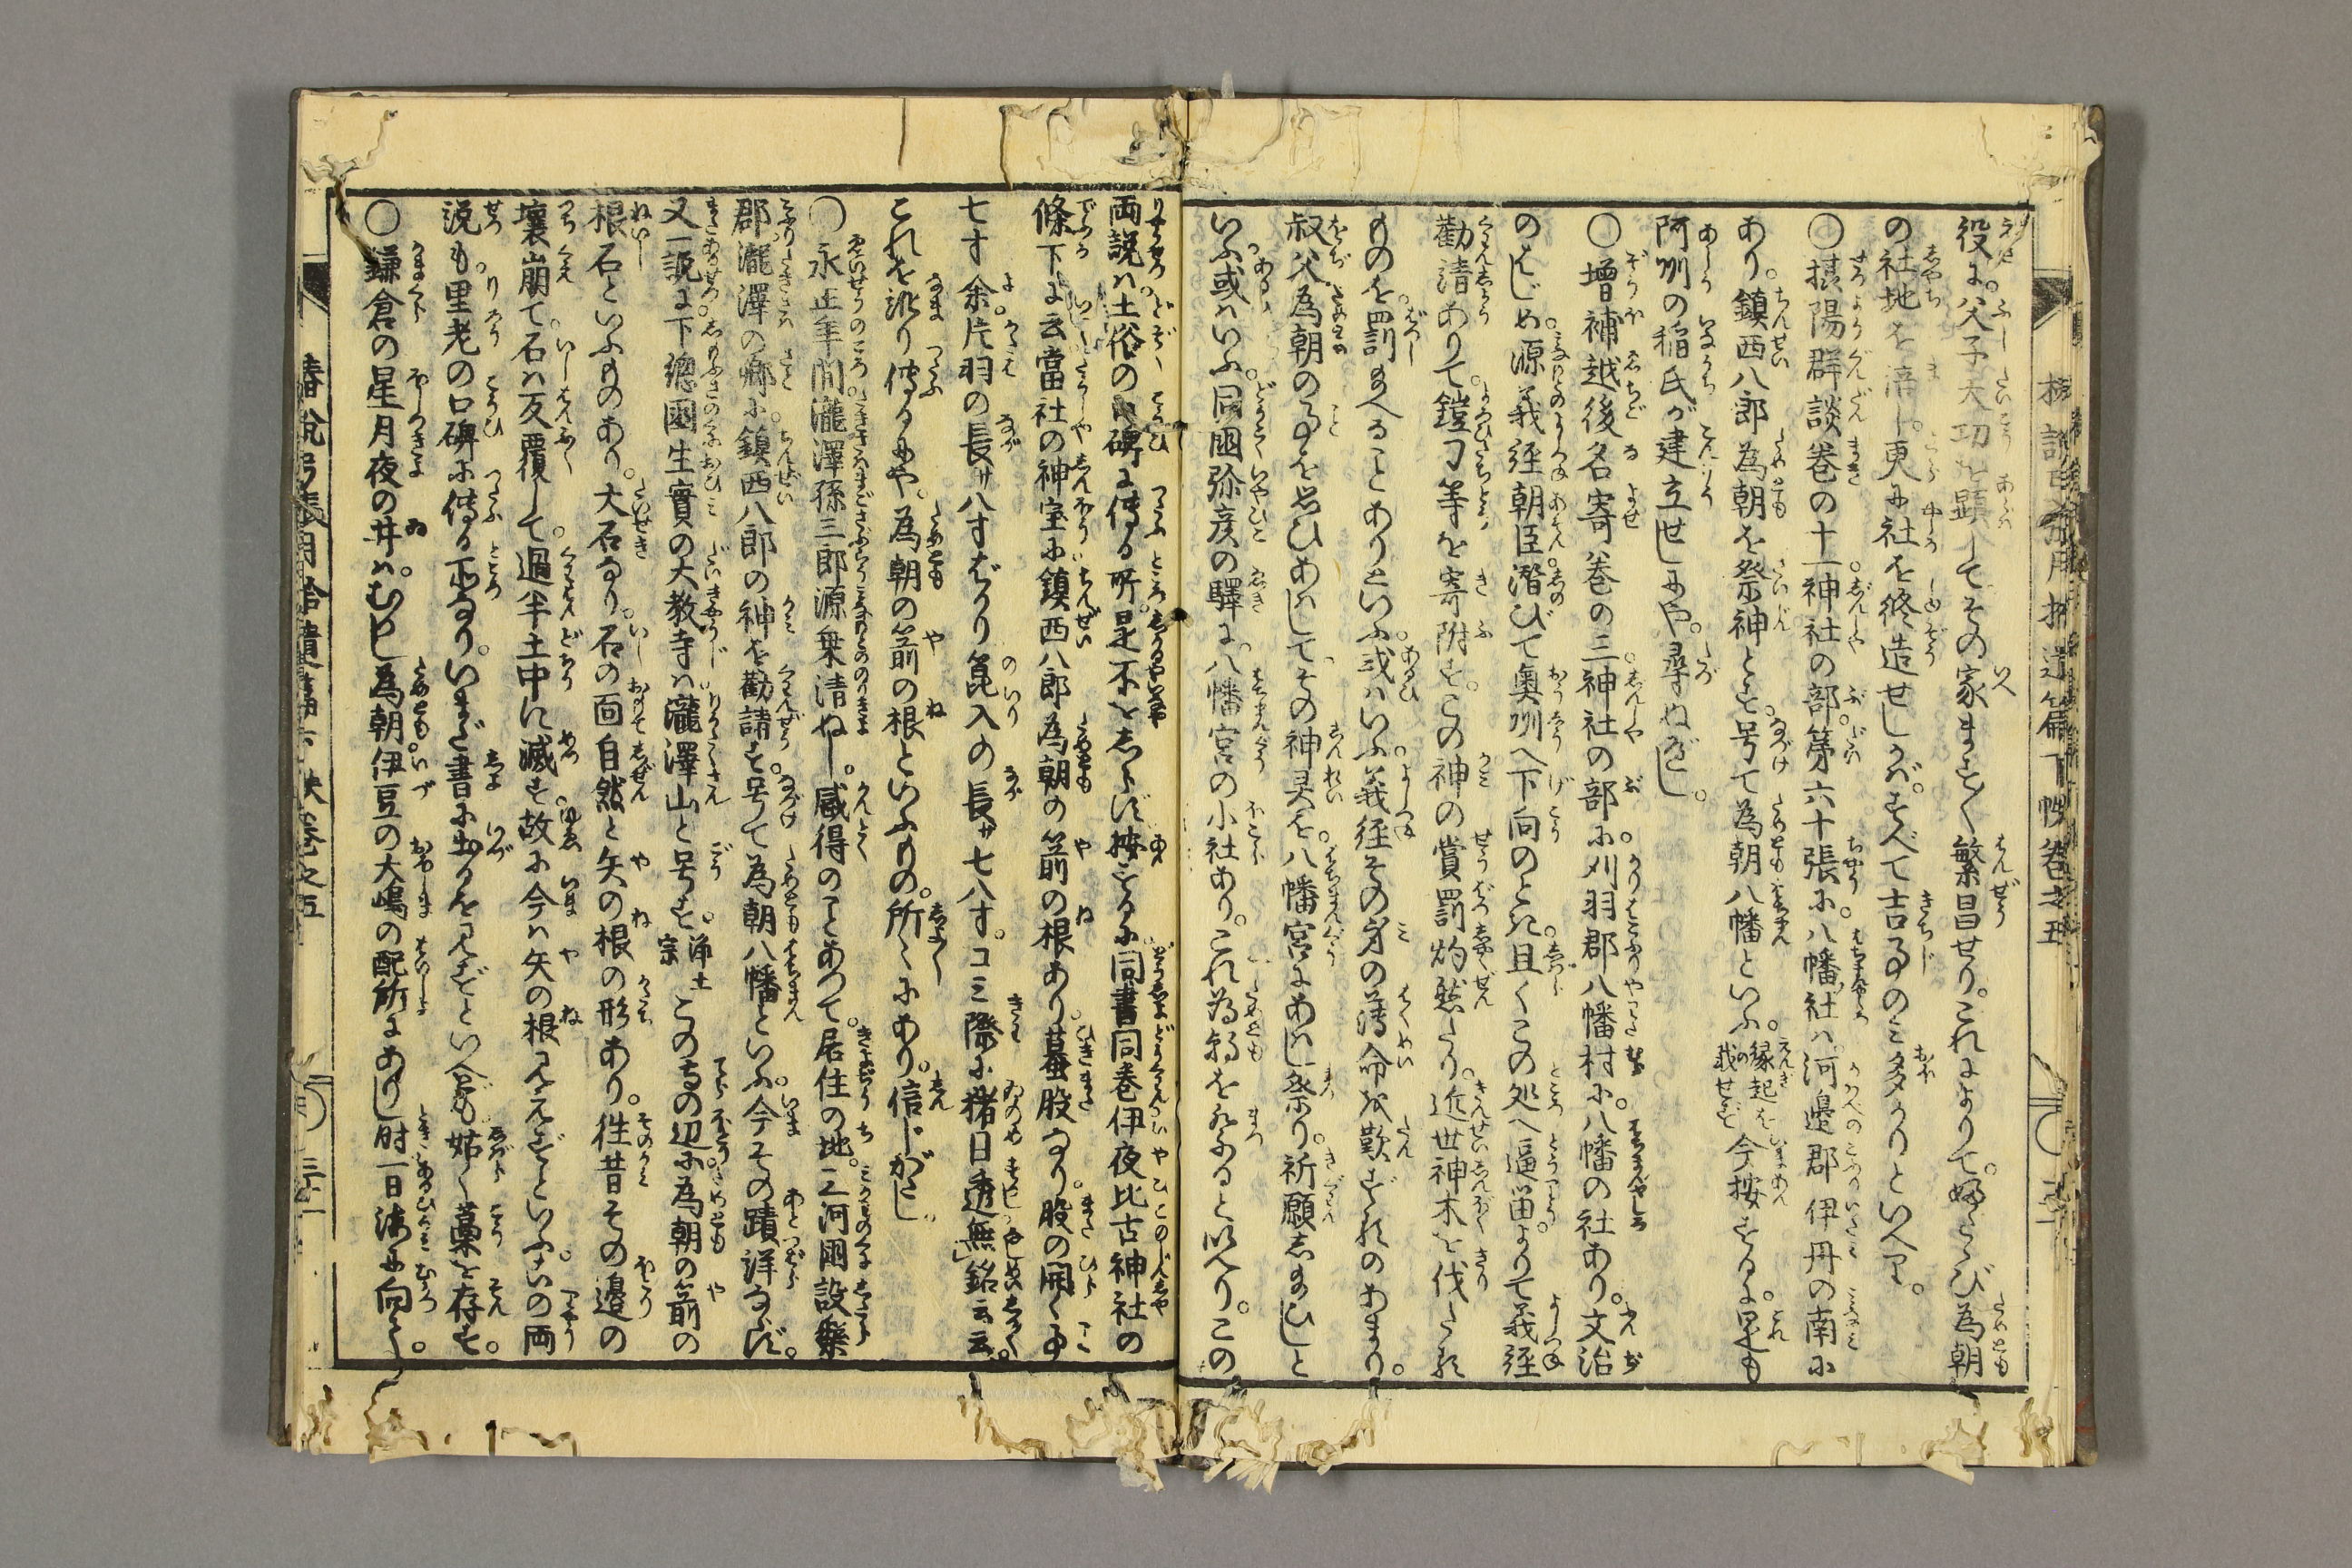 役に父子大功を顕してその家ますく繁昌せりこれによりて。ふたゝび為朝
の社地を、更に社を修造せしかば。すべて吉事のみ多かりといへり。
○摂陽群談巻の十一神社の部。第六十張に。八幡社ハ河邊郡伊丹の南に
あり。鎮西八郎為朝を祭神とす。号て為朝八幡といふ。縁起を載せず今按ずるに。是も
阿州の稲氏が建立せしにや。尋ぬべし。
○増補越後名寄巻の三神社の部に。刈羽郡八幡村に。八幡の社あり。文治
のはじめ源義経朝臣。潜びて奥州へ下向のとき。且くこの処へ逼笛。よりて義経
勧請ありて鎧刀等を寄附す。この神の賞罰灼然たり。近世神木を伐たる
ものを罰給へることありといふ。或ハいふ。義経その身の薄命を歎ずるのあまり。
叔父為朝の事を思ひあはしてその神灵を。八幡宮にあはし祭り。祈願し給ひしと
いふ或ハいふ。同國弥彦の驛に。八幡宮の小社あり。これ為朝をまつると以へり。この
両説ハ土俗の口碑に傳る所。是不をしらず按ずるに同書同巻伊夜比古神社の
條下に云當社の神宝に鎮西八郎為朝の箭の根あり。蟇股なり。股の開く事
七寸余片羽の長サ八寸ばかり箆入の長サ七八寸。コミ際に猪目透無銘云云。
これを訛り傳るにや。為朝の箭の根といふもの。所々にあり。信じがたし
○永正年間瀧澤孫三郎源乗清ぬし。感得のことあつて。居住の地。三河國設樂
郡瀧澤の郷に。鎮西八郎の神を勧請す。号て為朝八幡といふ今その蹟詳ならず。
又一説に下總國生實の大教寺ハ瀧澤山と号す。浄土宗この寺の辺に為朝の箭の
根石といふものあり。大石なり。石の面自然と矢の根の形あり。徃昔その邉の
壊崩て石ハ反覆して。過半土中に滅す故に今ハ矢の根見えずといふ。この両
説も。里老の口碑に傳る所なり。いまだ書に出るを見ずといへども姑く藁を存す。
○鎌倉の星月夜の井ハ。むかし為朝伊豆の大嶋の配所にありし时一日海に向ひ
椿説弓張月拾遺篇下帙巻之五
三十一